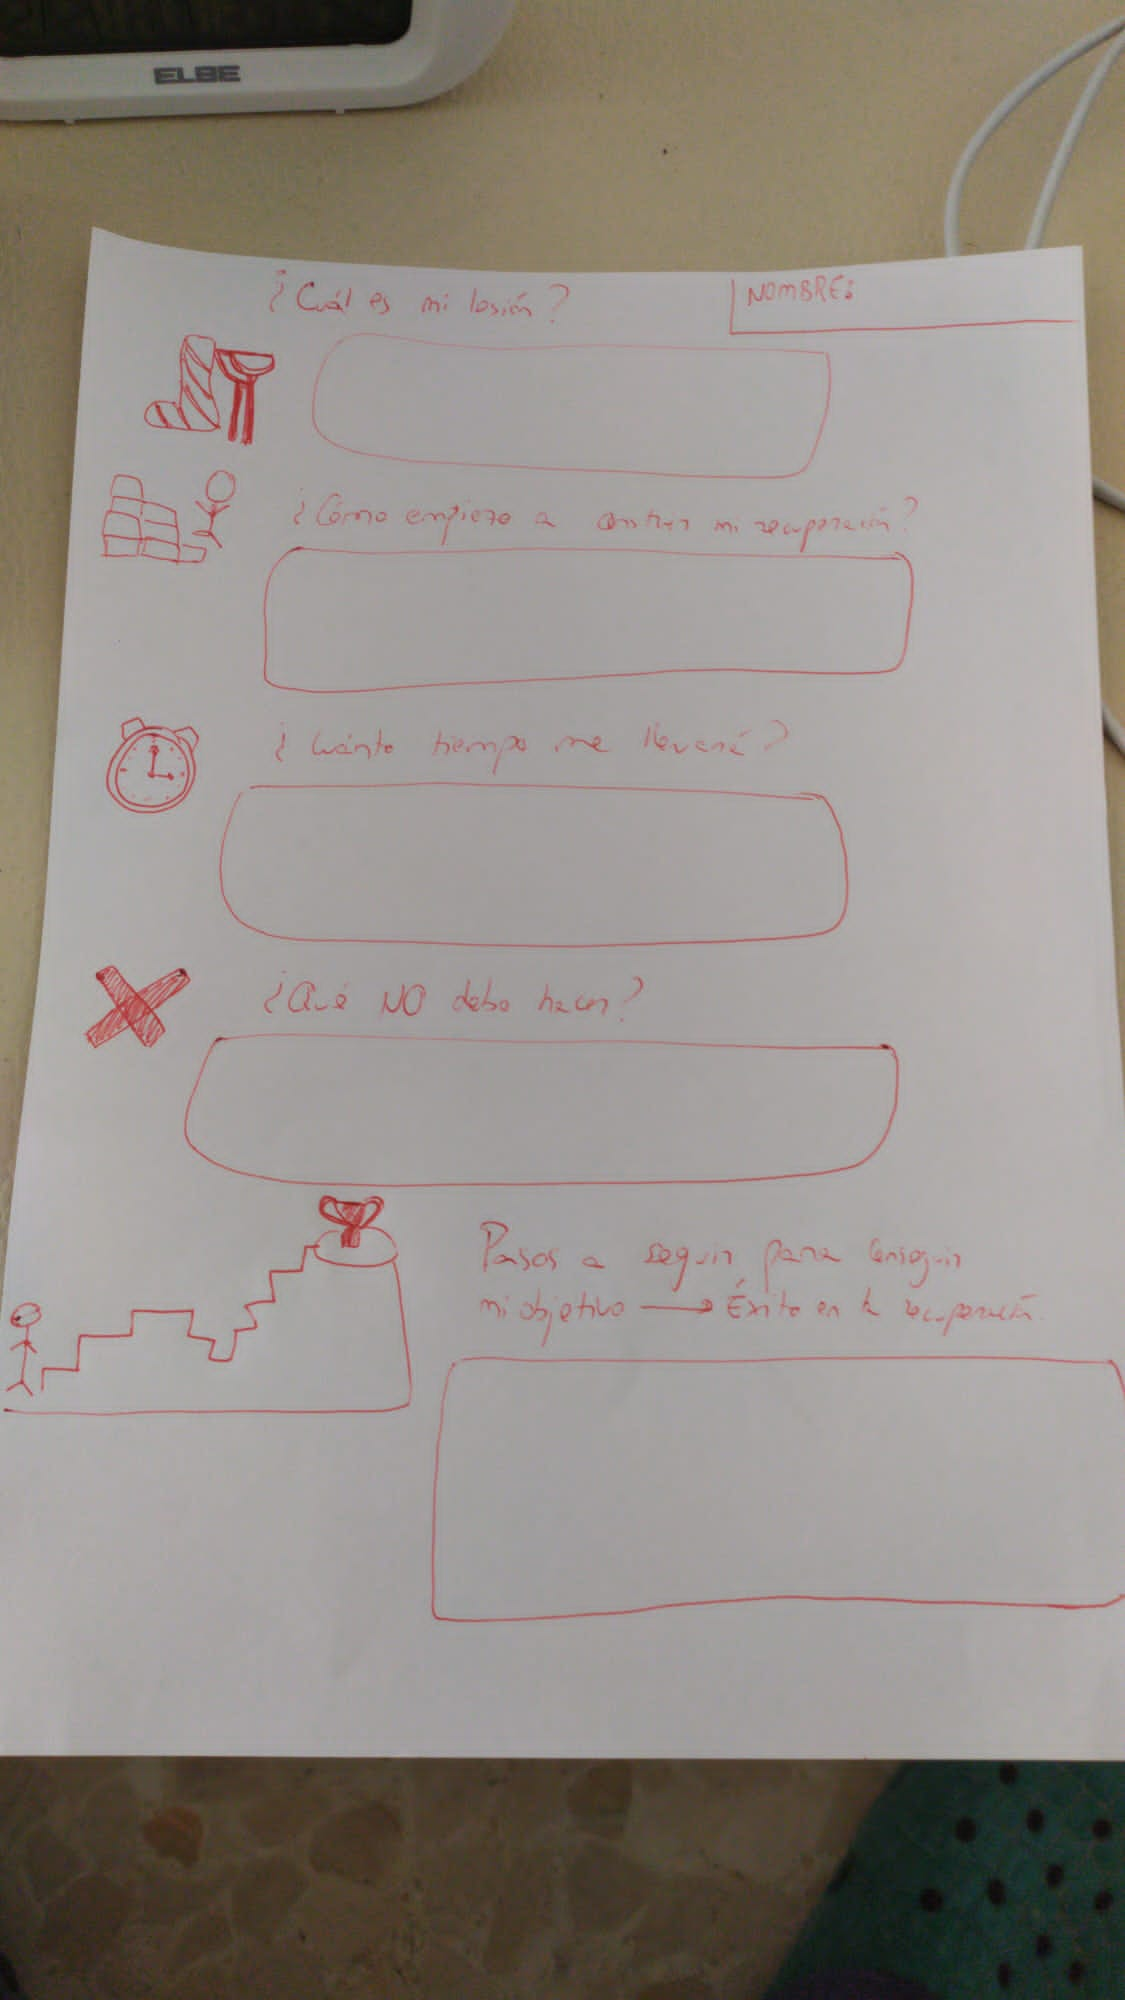 ELBE
¿Cuál es mi lesión?
NOMBRE:
¿Cómo empiezo a construir mi recuperación?
¿Cuánto tiempo me llevará?
¿Qué NO debo hacer?
Pasos a seguir para conseguir
mi objetivo → Éxito en la recuperación.